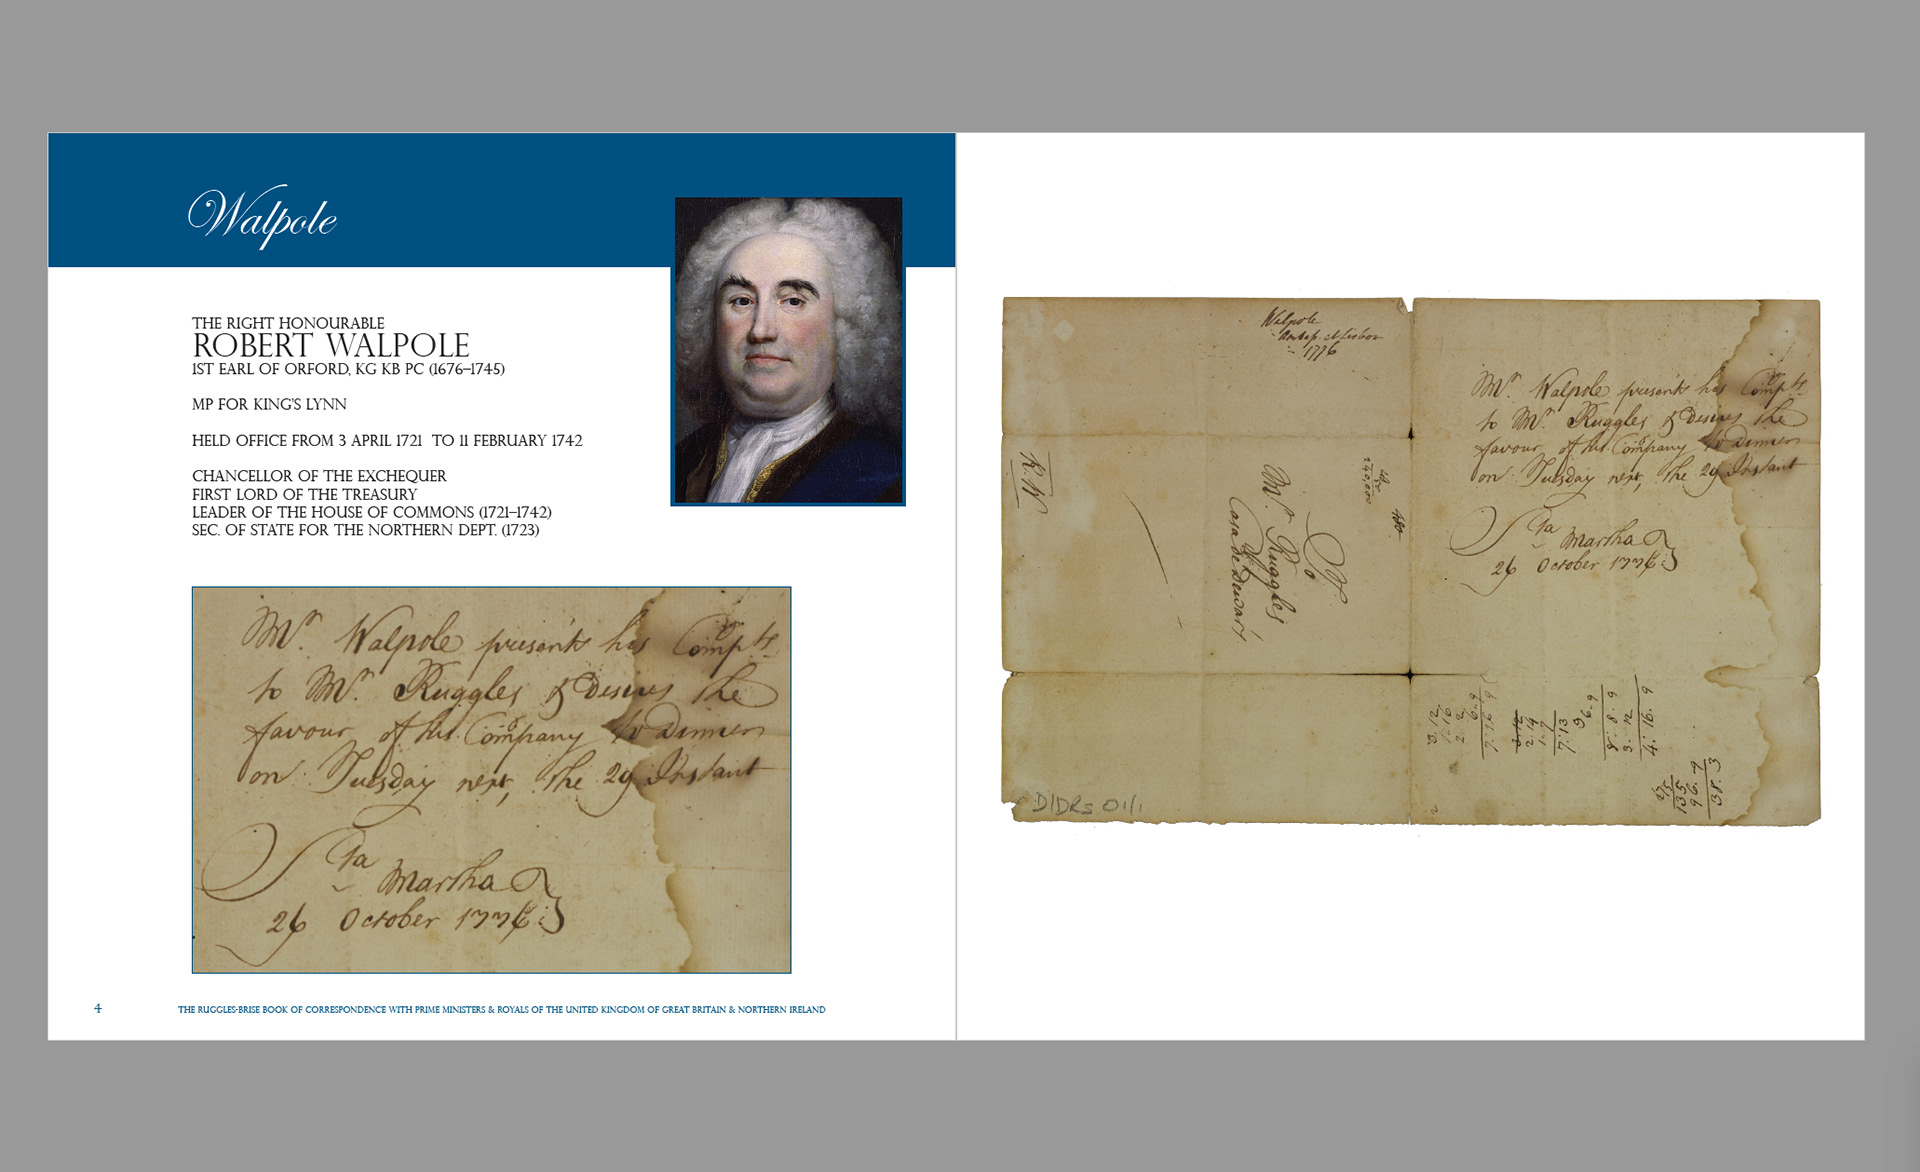 Walpole
THE RIGHT HONOURABLE
ROBERT WALPOLE
1ST EARL OF ORFORD, KG KB PC (1676–1745)
MP FOR KING'S LYNN
HELD OFFICE FROM 3 APRIL 1721 TO 11 FEBRUARY 1742
CHANCELLOR OF THE EXCHEQUER
FIRST LORD OF THE TREASURY
LEADER OF THE HOUSE OF COMMONS (1721–1742)
SEC. OF STATE FOR THE NORTHERN DEPT. (1723)
Mr. Walpole presents his Compts
to Mr. Ruggles & Desires the
favour of his Company to Dinner
on Tuesday next, the 29 Instant
Sta Martha
26 October 1776
4
THE RUGGLES-BRISE BOOK OF CORRESPONDENCE WITH PRIME MINISTERS & ROYALS OF THE UNITED KINGDOM OF GREAT BRITAIN & NORTHERN IRELAND
Walpole
Lisbon
1776
R:W
To
Mr. Ruggles
Casa de
D/DRs O1/1
Mr. Walpole presents his Compts
to Mr. Ruggles & Desires the
favour of his Company to Dinner
on Tuesday next, the 29 Instant
Sta Martha
26 October 1776